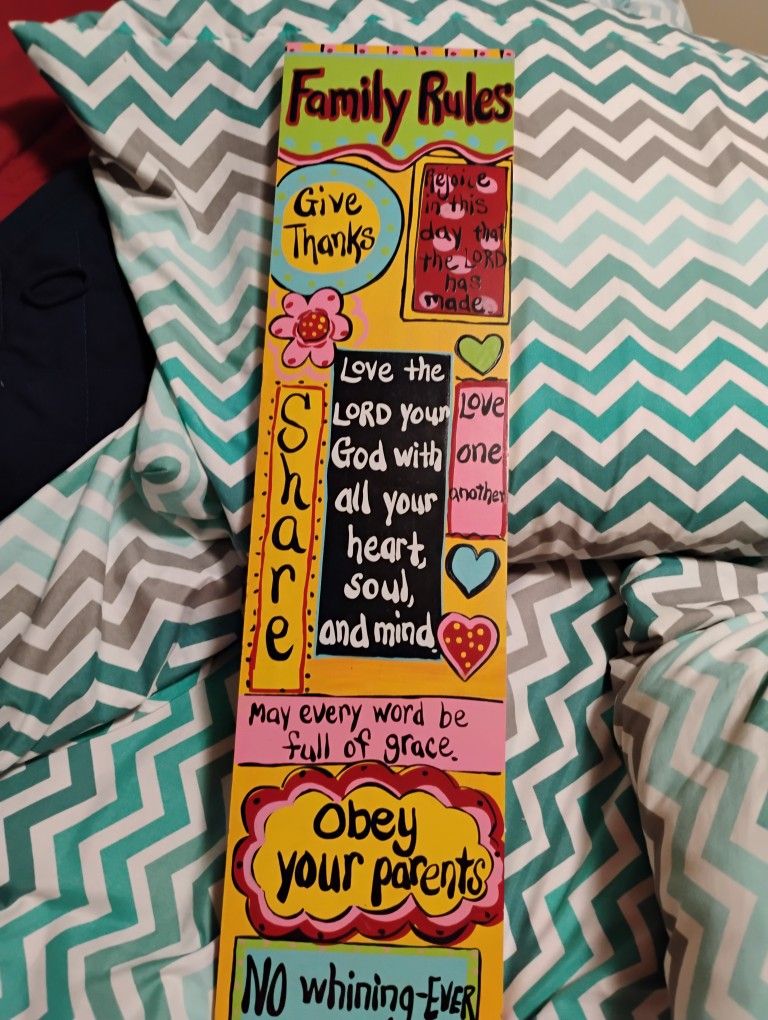 Family Rules
Give
Thanks
Rejoice
in this
day that
the LORD
has
made.
Share
Love the
LORD your
God with
all your
heart,
soul,
and mind.
Love
one
another
May every word be
full of grace.
Obey
your parents
NO whining-EVER